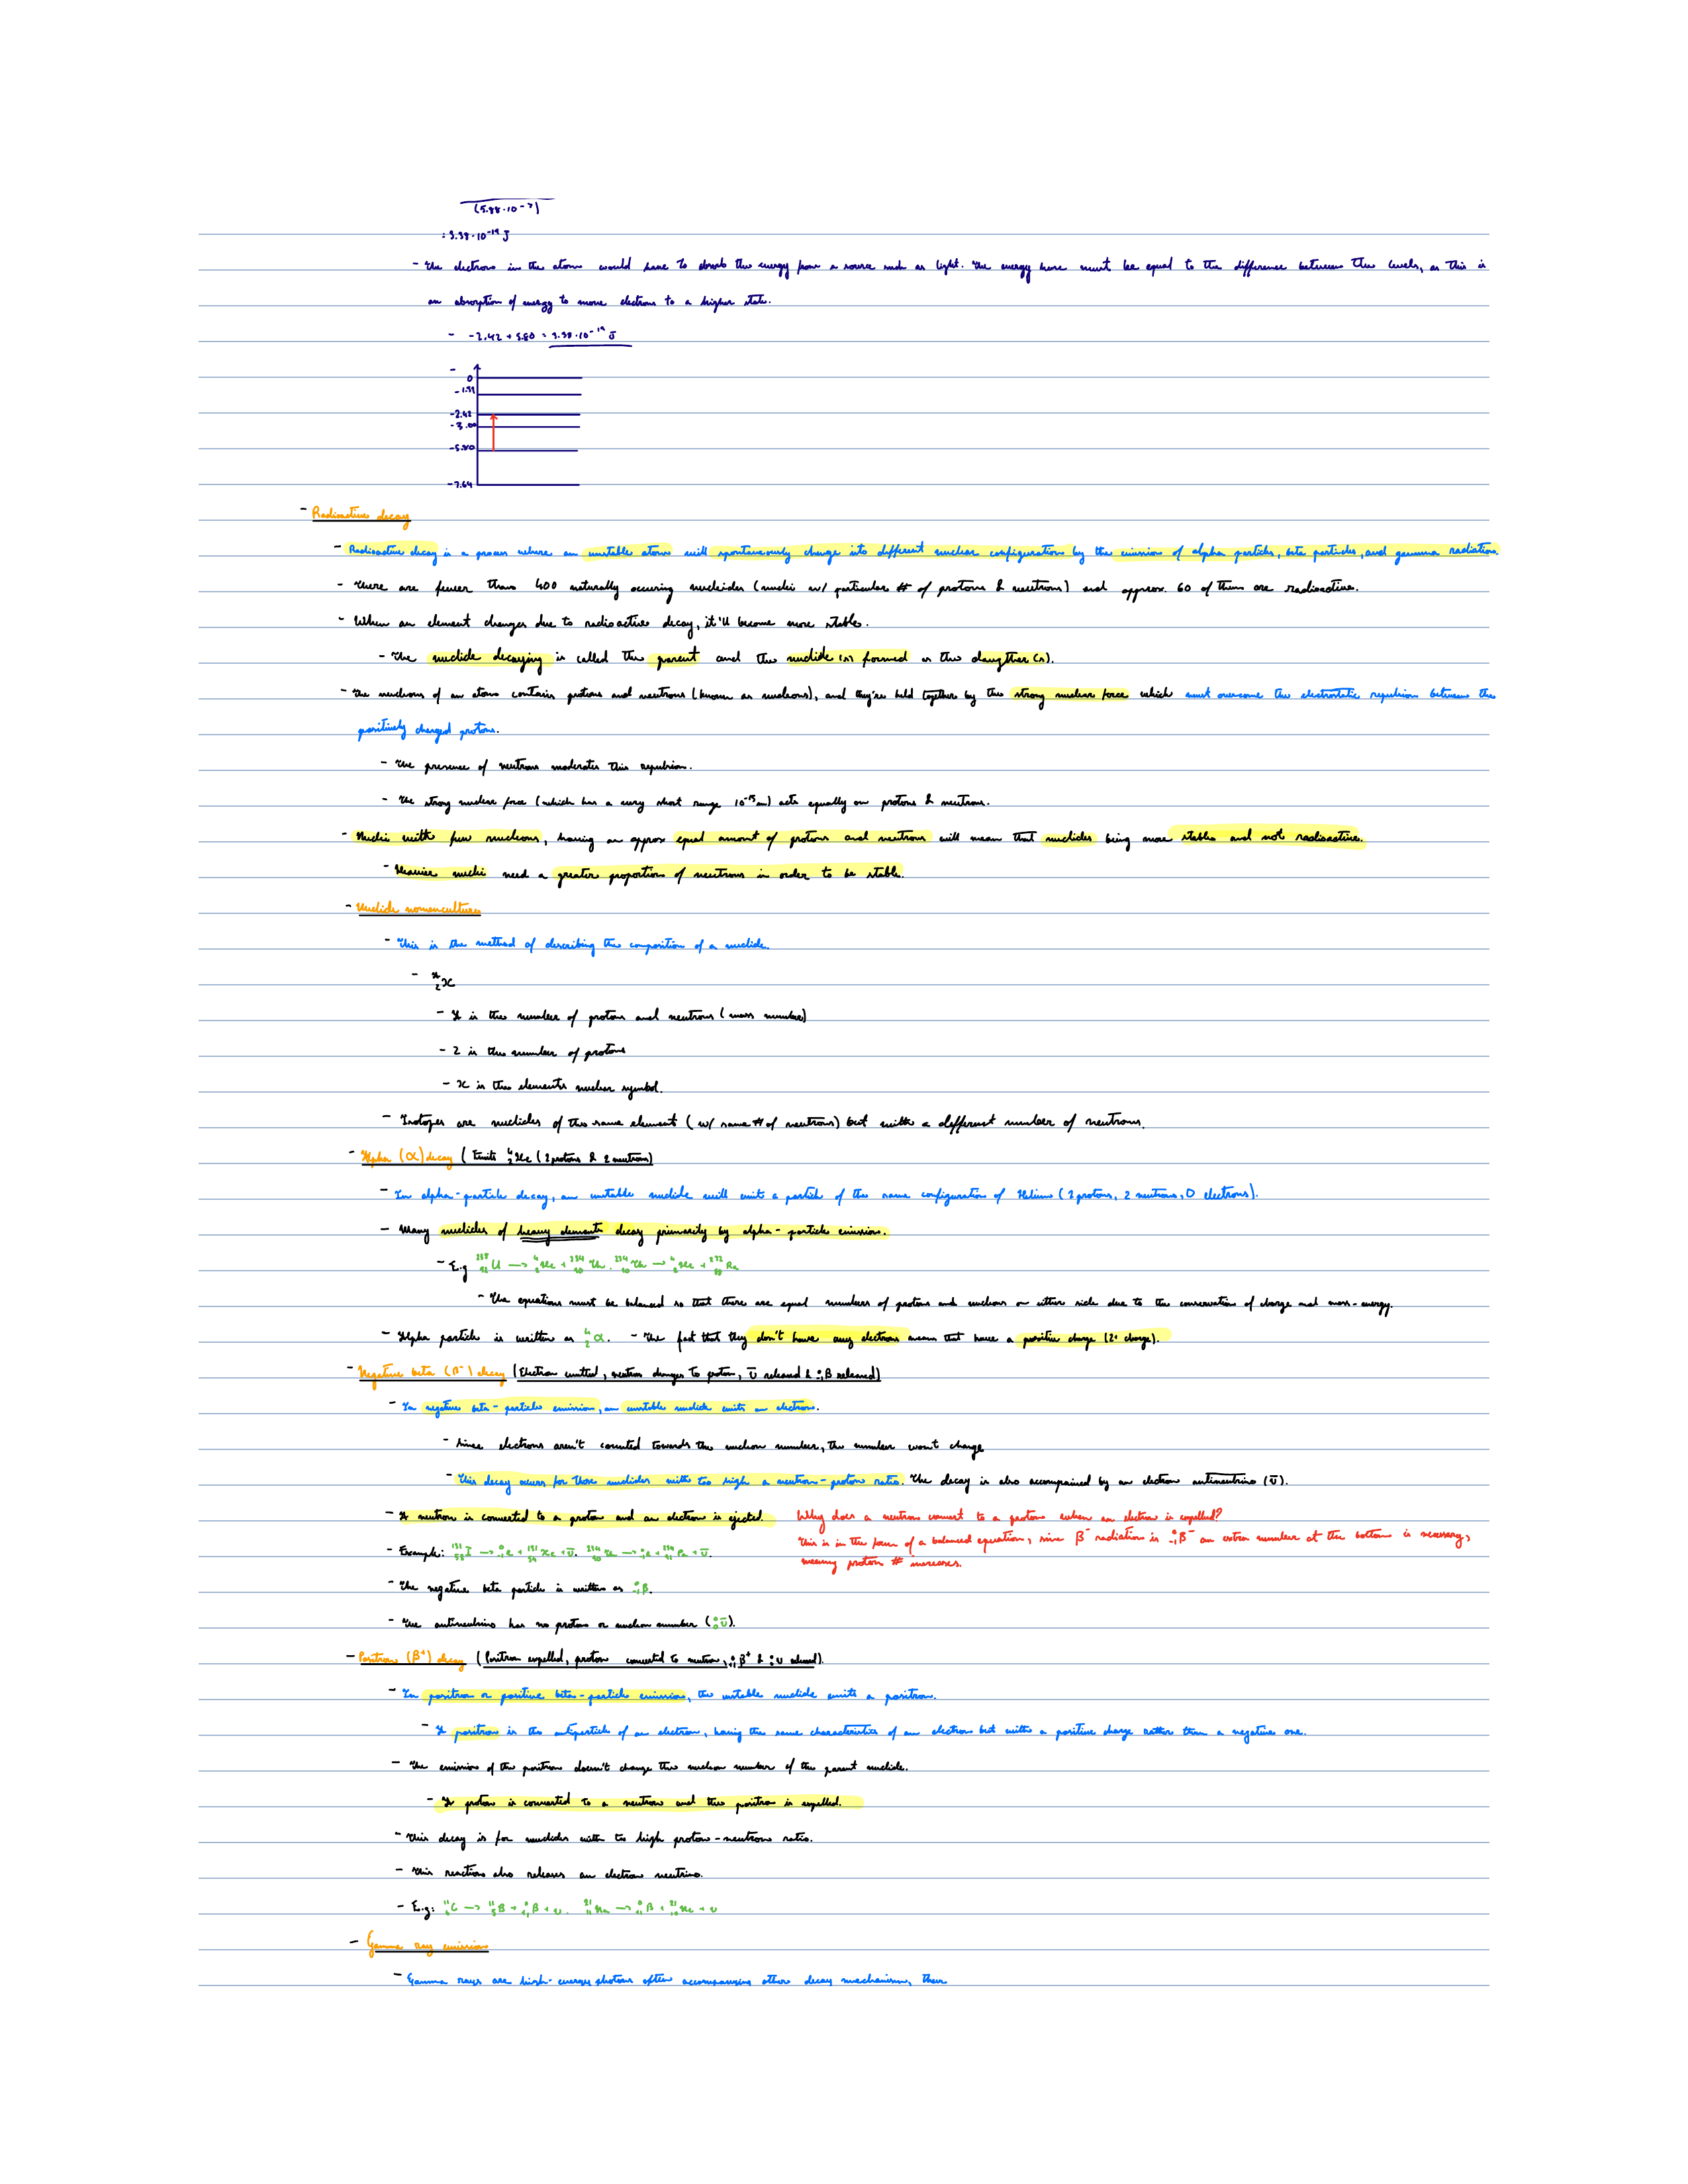 (5.88·10⁻⁷)
= 3.38·10⁻¹⁹ J
- The electrons in the atom would have to absorb the energy from a source such as light. The energy here must be equal to the difference between the levels, as this is
an absorption of energy to move electrons to a higher state.
- -2.42 + 5.80 = 3.38·10⁻¹⁹ J
- 0
-2.42
-3.00
-5.80
-7.64
- Radioactive decay
- Radioactive decay is a process where an unstable atom will spontaneously change into different nuclear configuration by the emission of alpha particles, beta particles, and gamma radiation.
- There are fewer than 400 naturally occuring nucleides (nuclei w/ particular # of protons & neutrons) and approx. 60 of them are radioactive.
- When an element changes due to radioactive decay, it'll become more stable.
- The nuclide decaying is called the parent and the nuclide(s) formed is the daughter(s).
- The nucleus of an atom contains protons and neutrons (known as nucleons), and they're held together by the strong nuclear force which must overcome the electrostatic repulsion between the
positively charged protons.
- The presence of neutrons moderates this repulsion.
- The strong nuclear force (which has a very short range 10⁻¹⁵m) acts equally on protons & neutrons.
- Nuclei with few nucleons, having an approx equal amount of protons and neutrons will mean that nuclides being more stable and not radioactive.
- Heavier nuclei need a greater proportion of neutrons in order to be stable.
- Nuclide nomenculture
- This is the method of describing the composition of a nuclide.
- ᴬ₂X
- A is the number of protons and neutrons (mass number)
- Z is the number of protons
- X is the elements nuclear symbol.
- Isotopes are nuclides of the same element (w/ same # of neutrons) but with a different number of neutrons.
- Alpha (α) decay (Emits ⁴₂He (2 protons & 2 neutrons)
- In alpha-particle decay, an unstable nuclide will emit a particle of the same configuration of Helium (2 protons, 2 neutrons, 0 electrons).
- Many nuclides of heavy elements decay primarily by alpha-particle emission.
- E.g ²³⁸₉₂U → ⁴₂He + ²³⁴₉₀Th. ²³⁴₉₀Th → ⁴₂He + ²³²₈₈Ra
- The equations must be balanced so that there are equal numbers of protons and nucleons on either side due to the conservation of charge and mass-energy.
- Alpha particle is written as ⁴₂α. - The fact that they don't have any electrons mean that have a positive charge (2+ charge).
- Negative beta (β⁻) decay (Electron emitted, neutron changes to proton, ν̄ released & ⁰₋₁β released)
- In negative beta-particle emission, an unstable nuclide emits an electron.
- Since electrons aren't counted towards the nucleon number, the number won't change
- This decay occurs for those nuclides with too high a neutron-proton ratio. The decay is also accompained by an electron antineutrino (ν̄).
- A neutron is converted to a proton and an electron is ejected. Why does a neutron convert to a proton when an electron is expelled?
This is in the form of a balanced equation, since β⁻ radiation is ⁰₋₁β⁻ an extra number at the bottom is necessary,
meaning proton # increases.
- Example: ¹³¹₅₃I → ⁰₋₁e + ¹³¹₅₄Xe + ν̄. ²³⁴₉₀Th → ⁰₋₁e + ²³⁴₉₁Pa + ν̄.
- The negative beta particle is written as ⁰₋₁β.
- The antineutrino has no proton or nucleon number (⁰₀ν̄).
- Positron (β⁺) decay (Positron expelled, proton converted to neutron, ⁰₊₁β⁺ & ⁰₀ν released).
- In positron or positive beta-particle emission, the unstable nuclide emits a positron.
- A positron is the antiparticle of an electron, having the same characteristics of an electron but with a positive charge rather than a negative one.
- The emission of the positron doesn't change the nucleon number of the parent nuclide.
- A proton is converted to a neutron and the positron is expelled.
- This decay is for nuclides with too high proton-neutron ratio.
- This reaction also releases an electron neutrino.
- E.g: ¹¹₆C → ¹¹₅B + ⁰₊₁β + ν. ²¹₁₁Na → ⁰₊₁β + ²¹₁₀Ne + ν
- Gamma ray emission
- Gamma rays are high-energy photons often accompanying other decay mechanism, their